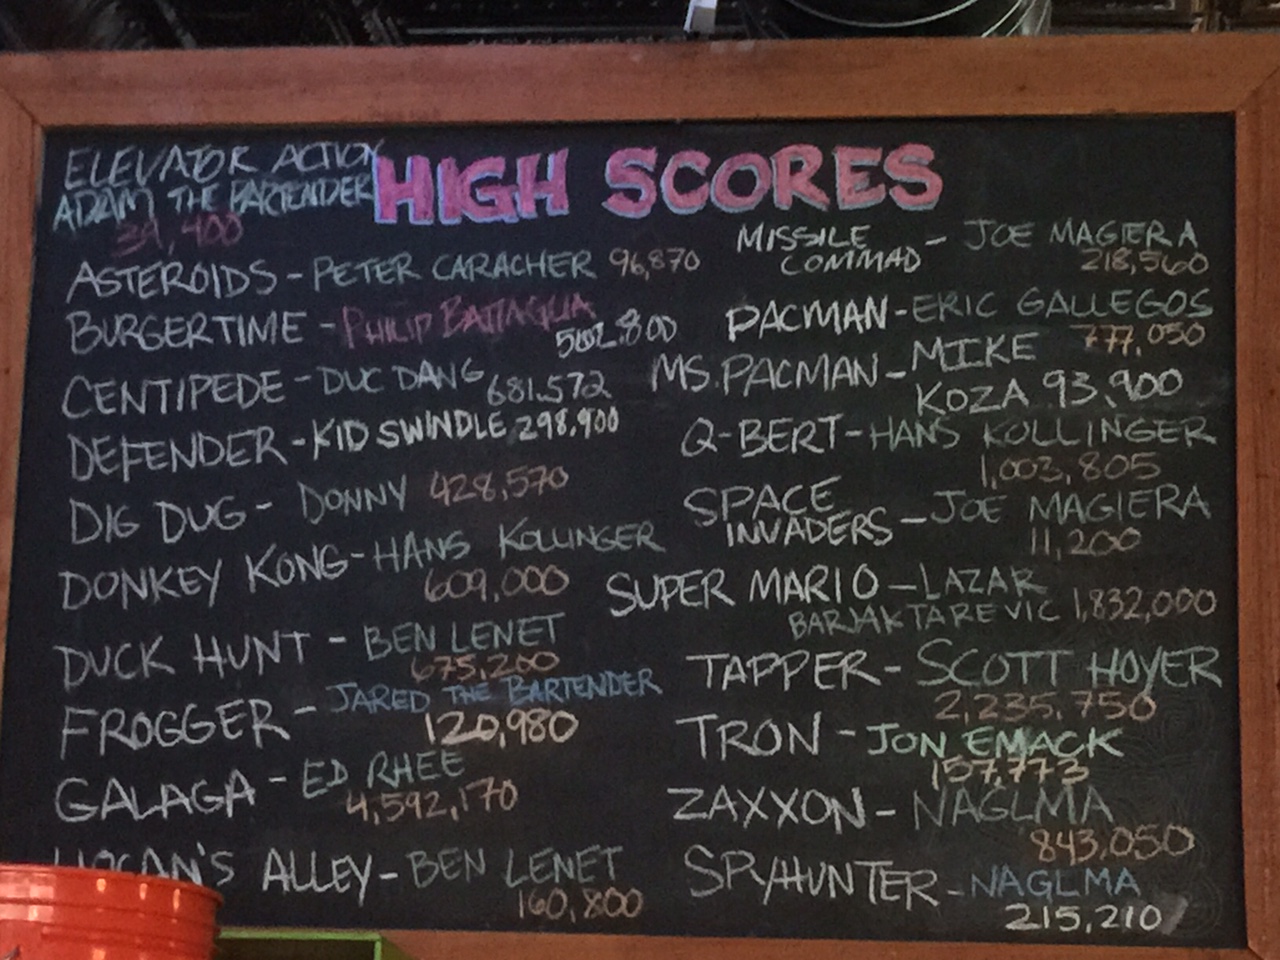 HIGH SCORES
ELEVATOR ACTION
ADAM THE BARTENDER
39,400
ASTEROIDS - PETER CARACHER 96,870
BURGERTIME - PHILIP BATTAGLIA
502,800
CENTIPEDE - DUC DANG 681,572
DEFENDER - KID SWINDLE 298,900
DIG DUG - DONNY 428,570
DONKEY KONG - HANS KOLLINGER
609,000
DUCK HUNT - BEN LENET
675,200
FROGGER - JARED THE BARTENDER
120,980
GALAGA - ED RHEE
4,592,170
HOGAN'S ALLEY - BEN LENET
160,800
MISSILE - JOE MAGIERA
COMMAD 218,560
PACMAN - ERIC GALLEGOS
777,050
MS. PACMAN - MIKE
KOZA 93,900
Q-BERT - HANS KOLLINGER
1,003,805
SPACE
INVADERS - JOE MAGIERA
11,200
SUPER MARIO - LAZAR
BARJAKTAREVIC 1,832,000
TAPPER - SCOTT HOYER
2,235,750
TRON - JON EMACK
157,773
ZAXXON - NAGLMA
843,050
SPYHUNTER - NAGLMA
215,210